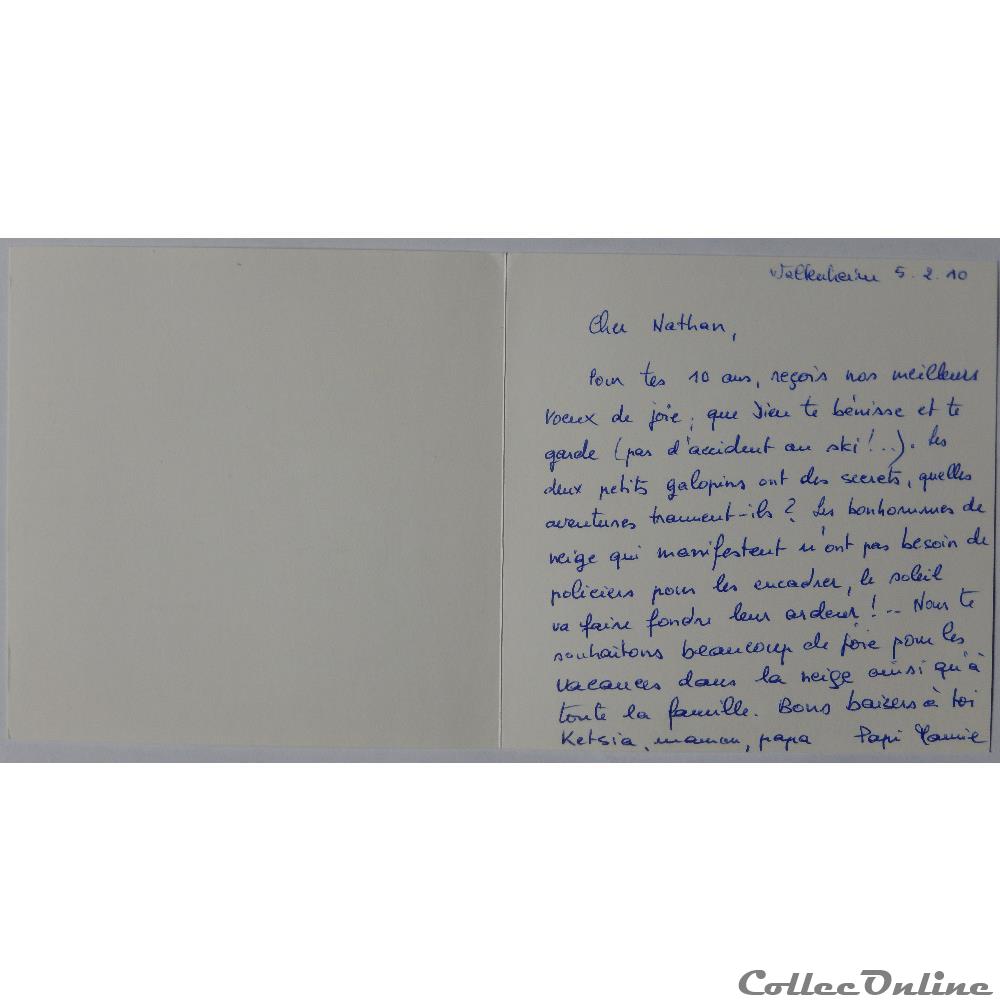 5.2.10
Cher Nathan,
Pour tes 10 ans, reçois nos meilleurs
voeux de joie, que Dieu te bénisse et te
garde (pas d'accident au ski!...). Les
deux petits galopins ont des secrets, quelles
aventures trament-ils? Les bonhommes de
neige qui manifestent n'ont pas besoin de
policiers pour les encadrer, le soleil
va faire fondre leur ardeur!... Nous te
souhaitons beaucoup de joie pour les
vacances dans la neige ainsi qu'à
toute la famille. Bons baisers à toi
Ketsia, maman, papa Papi Mamie
CollecOnline